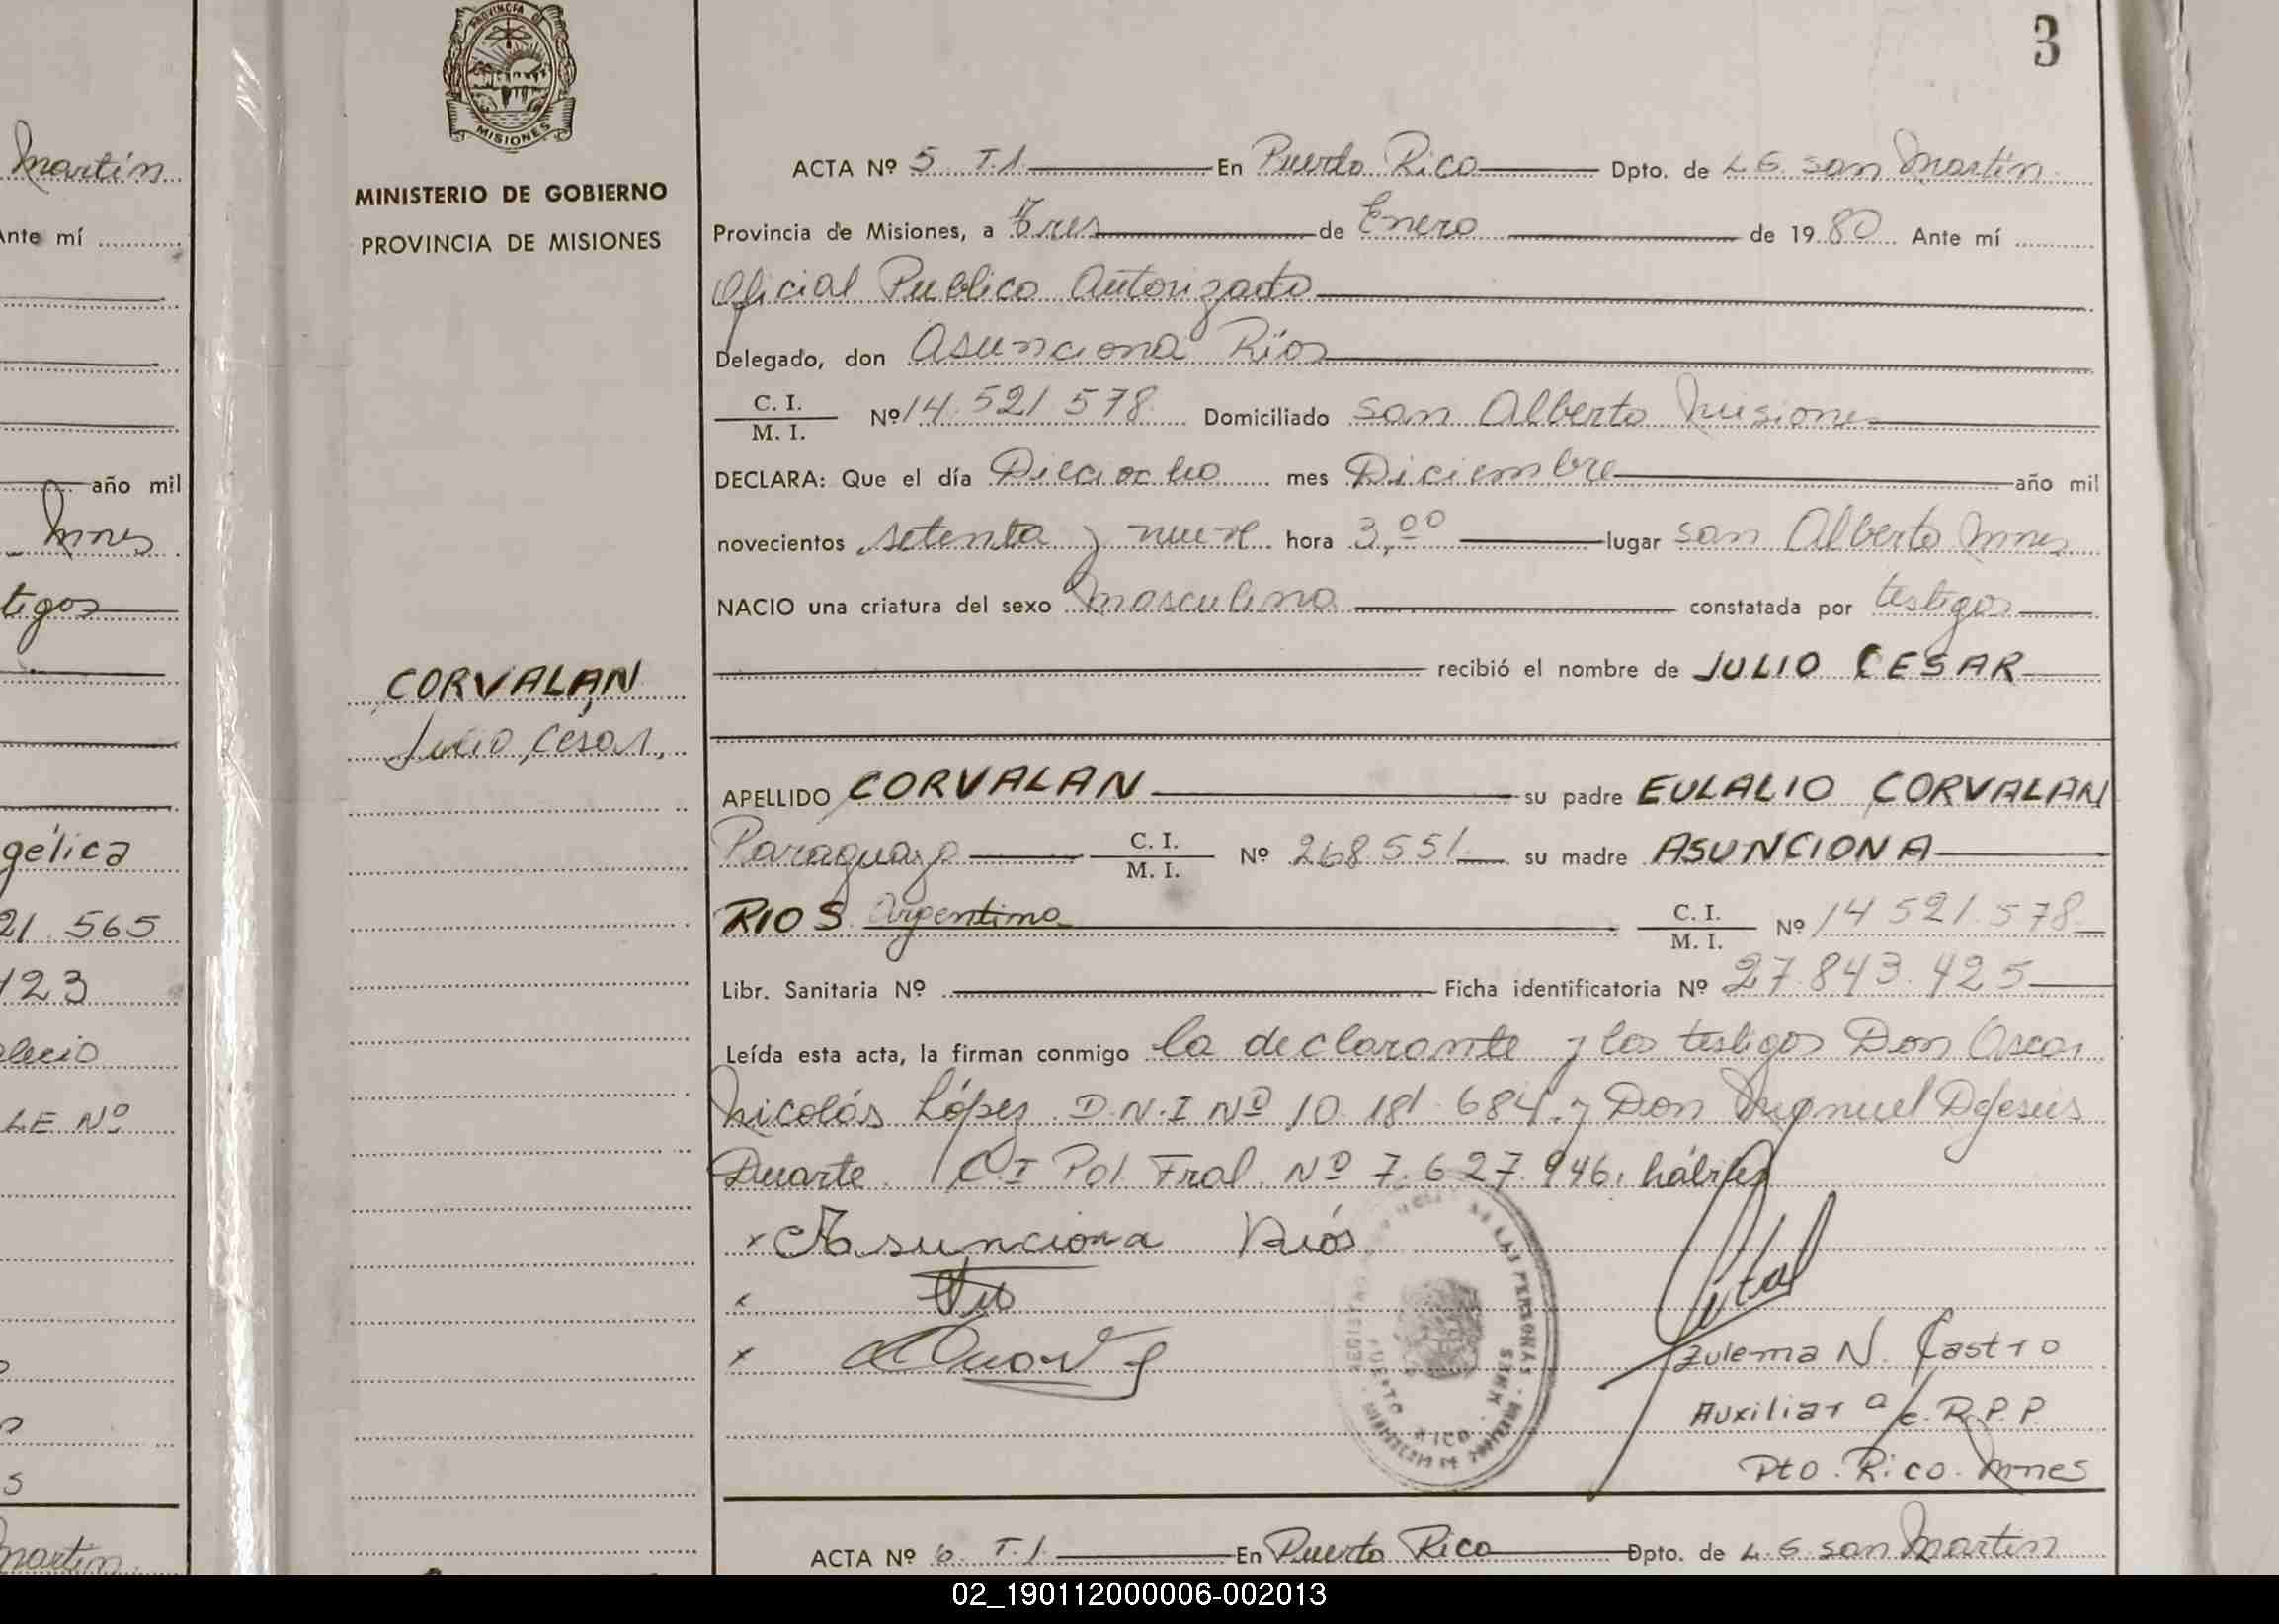 3
PROVINCIA DE
MISIONES
MINISTERIO DE GOBIERNO
PROVINCIA DE MISIONES
CORVALAN
Julio César,
ACTA Nº 5 T.1. En Puerto Rico Dpto. de L G. San Martín
Provincia de Misiones, a Tres de Enero de 1980 Ante mí
Oficial Publico Autorizado
Delegado, don Asunciona Ríos
C. I. / M. I. Nº 14.521.578 Domiciliado San Alberto Misiones
DECLARA: Que el día Dieciocho mes Diciembre año mil
novecientos setenta y nueve hora 3,00 lugar San Alberto Mnes
NACIO una criatura del sexo Masculino constatada por testigos
recibió el nombre de JULIO CESAR
APELLIDO CORVALAN su padre EULALIO CORVALAN
Paraguayo C. I. / M. I. Nº 268551 su madre ASUNCIONA
RIOS Argentina C. I. / M. I. Nº 14 521.578
Libr. Sanitaria Nº Ficha identificatoria Nº 27.843.425
Leída esta acta, la firman conmigo la declarante y los testigos Don Oscar
Nicolás López D.N.I Nº 10.181.684. y Don Manuel DeJesús
Duarte. C.I Pol. Fral. Nº 7.627.946, hábiles
x Asunciona Riós
x
x
REGISTRO DE LAS PERSONAS
PUERTO RICO - MNES
MINISTERIO DE GOBIERNO
Zulema N. Castro
Auxiliar a/c. R.P.P.
Pto. Rico. Mnes
ACTA Nº 6 T.1 En Puerto Rico Dpto. de L.G. San Martín
Martín
Ante mí
año mil
Mnes
tigos
gélica
21.565
123
LE Nº
s
martín
02_190112000006-002013